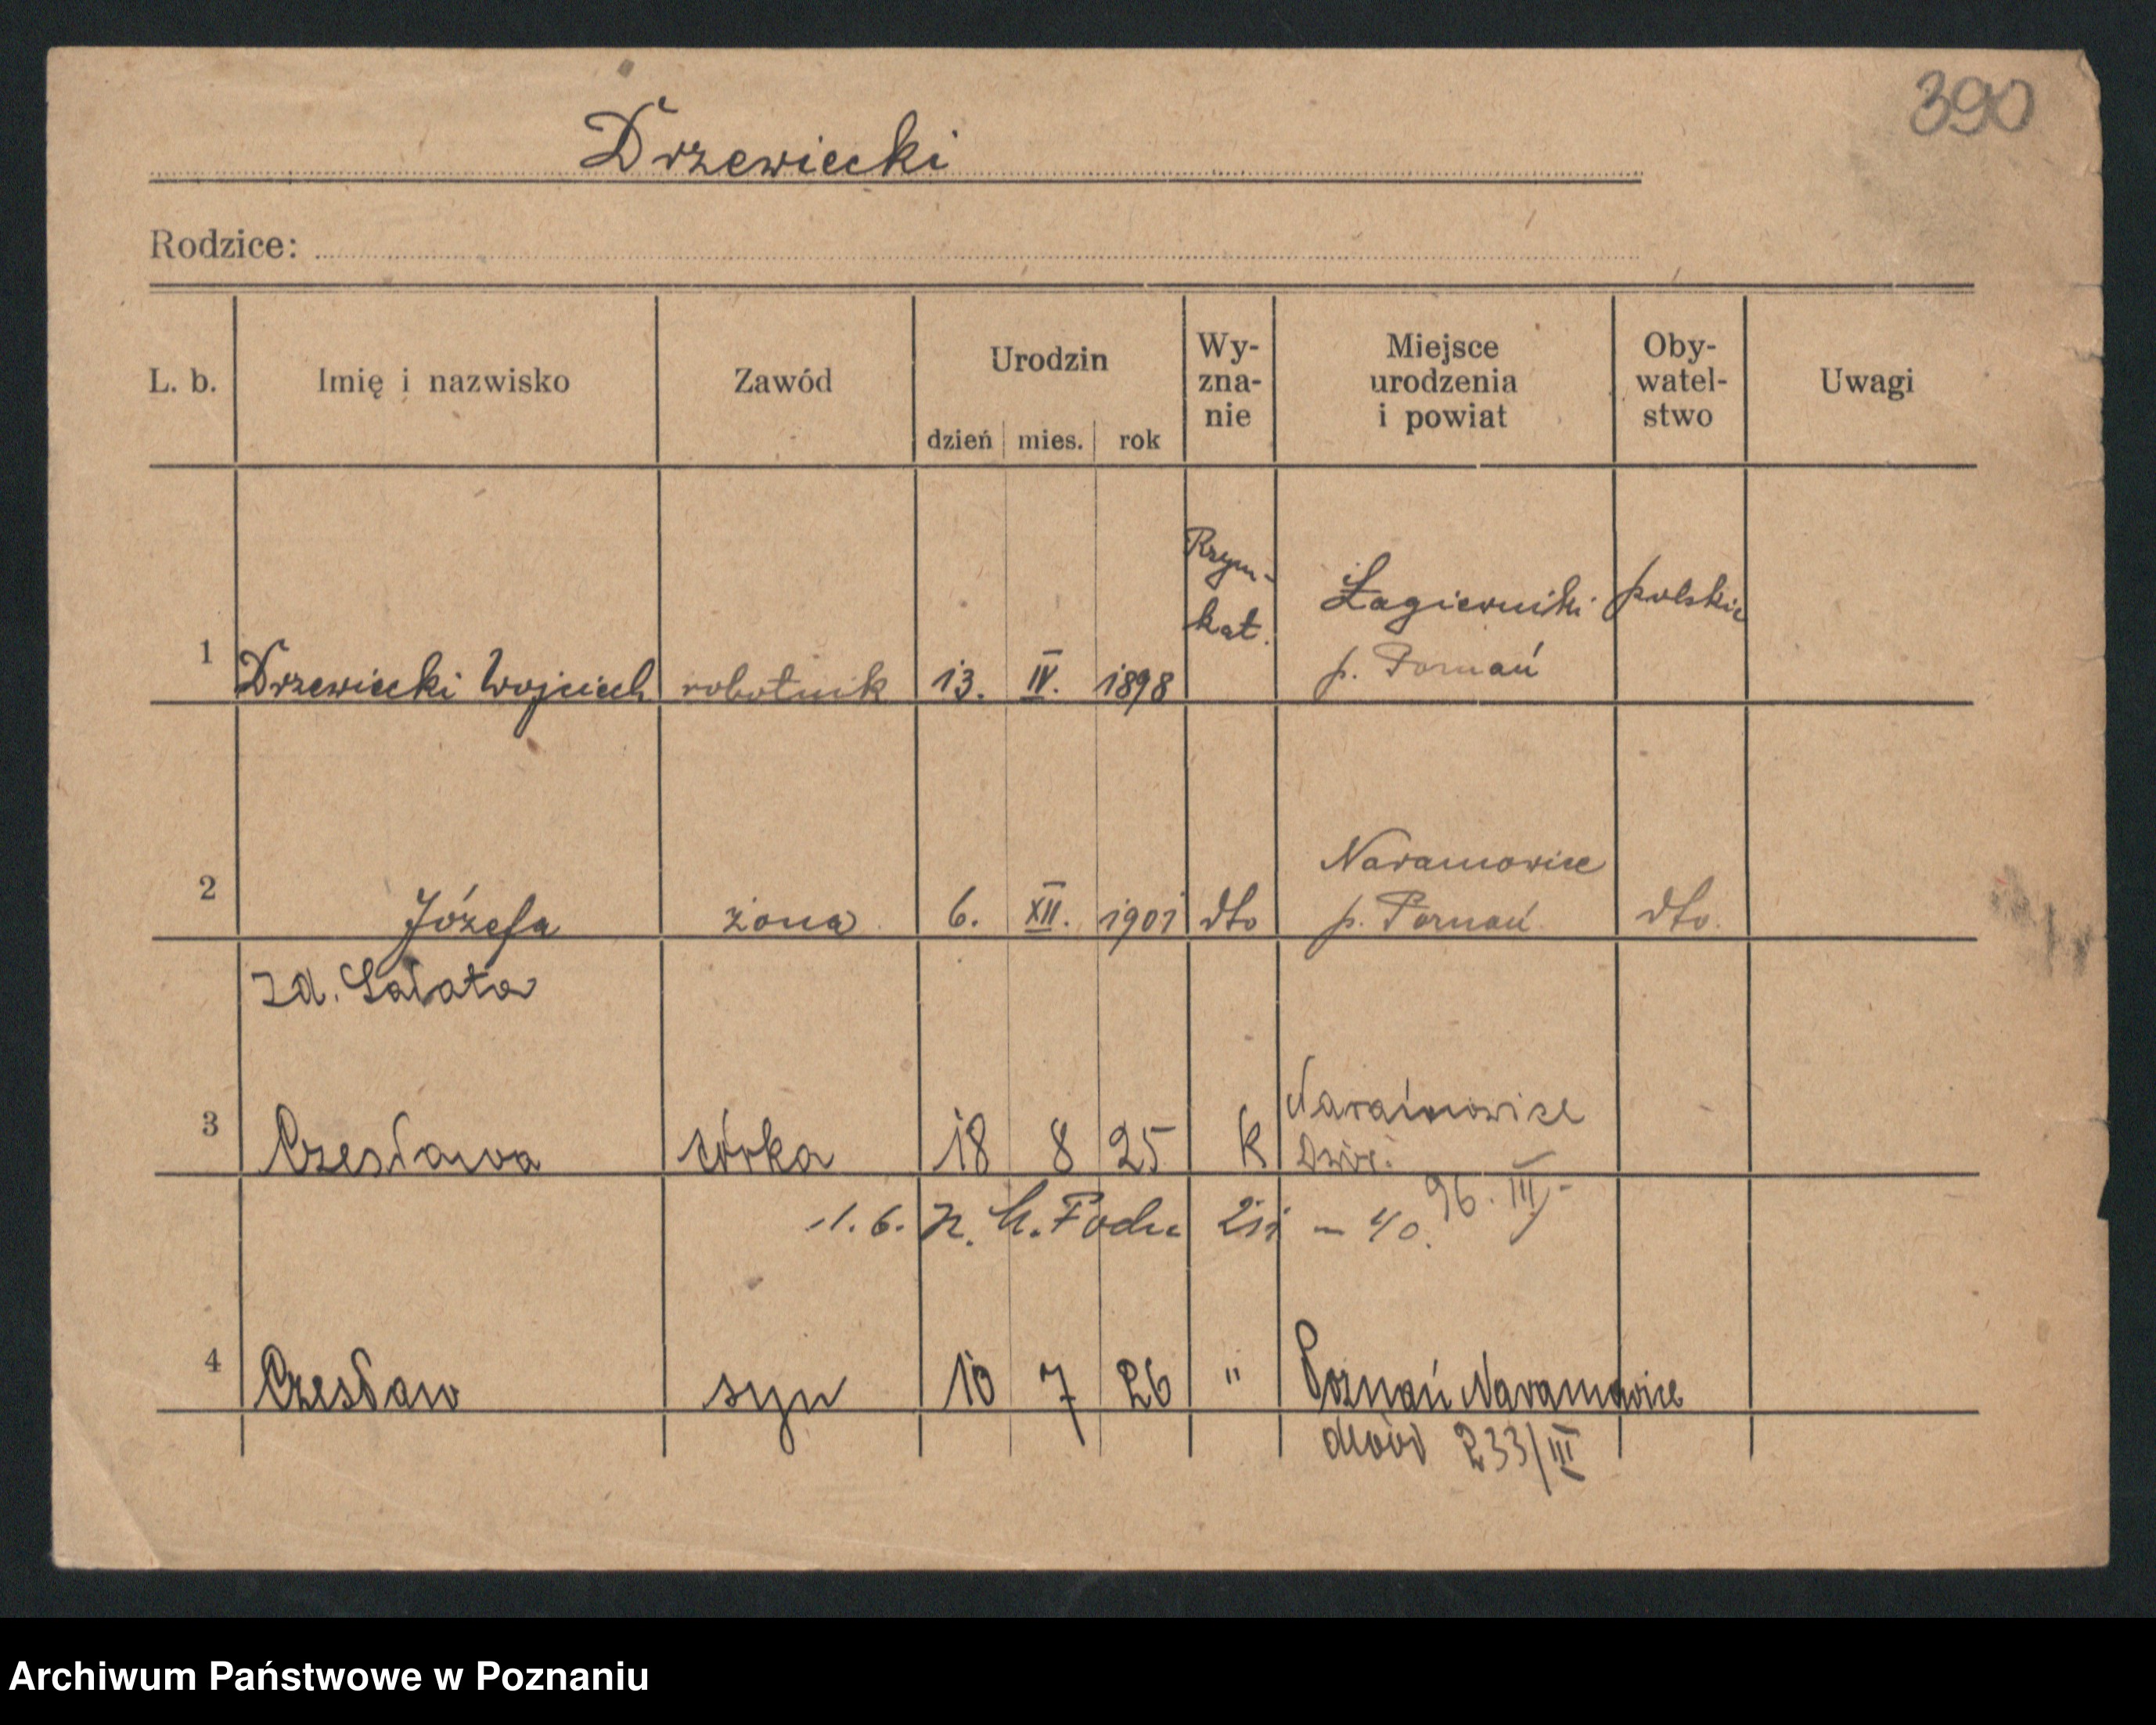 390
Drzewiecki
Rodzice:
L. b. Imię i nazwisko Zawód Urodzin dzień mies. rok Wy-zna-nie Miejsce urodzenia i powiat Oby-watel-stwo Uwagi
1 Drzewiecki Wojciech robotnik 13. IV. 1898 Rzym-kat. Łagiewniki p. Poznań polskie
2 Józefa żona 6. XII. 1901 dto Naramowice p. Poznań dto.
zd. Sałata
3 Czesława córka 18 8 25 k Naramowice
96. III
1. 6. 211 - 40.
4 Czesław syn 10 7 26 " Poznań Naramowice
dwór 233/III
Archiwum Państwowe w Poznaniu